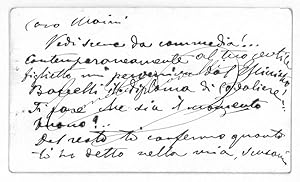 caro Mascini
Vedi scena da commedia!...
Contemporaneamente al tuo gentile
biglietto mi perveniva dal Ministro
Baccelli il diploma di Cavaliere!
Ti pare che sia il momento
buono?..
Del resto ti confermo quanto
ti ho detto nella mia, scusami